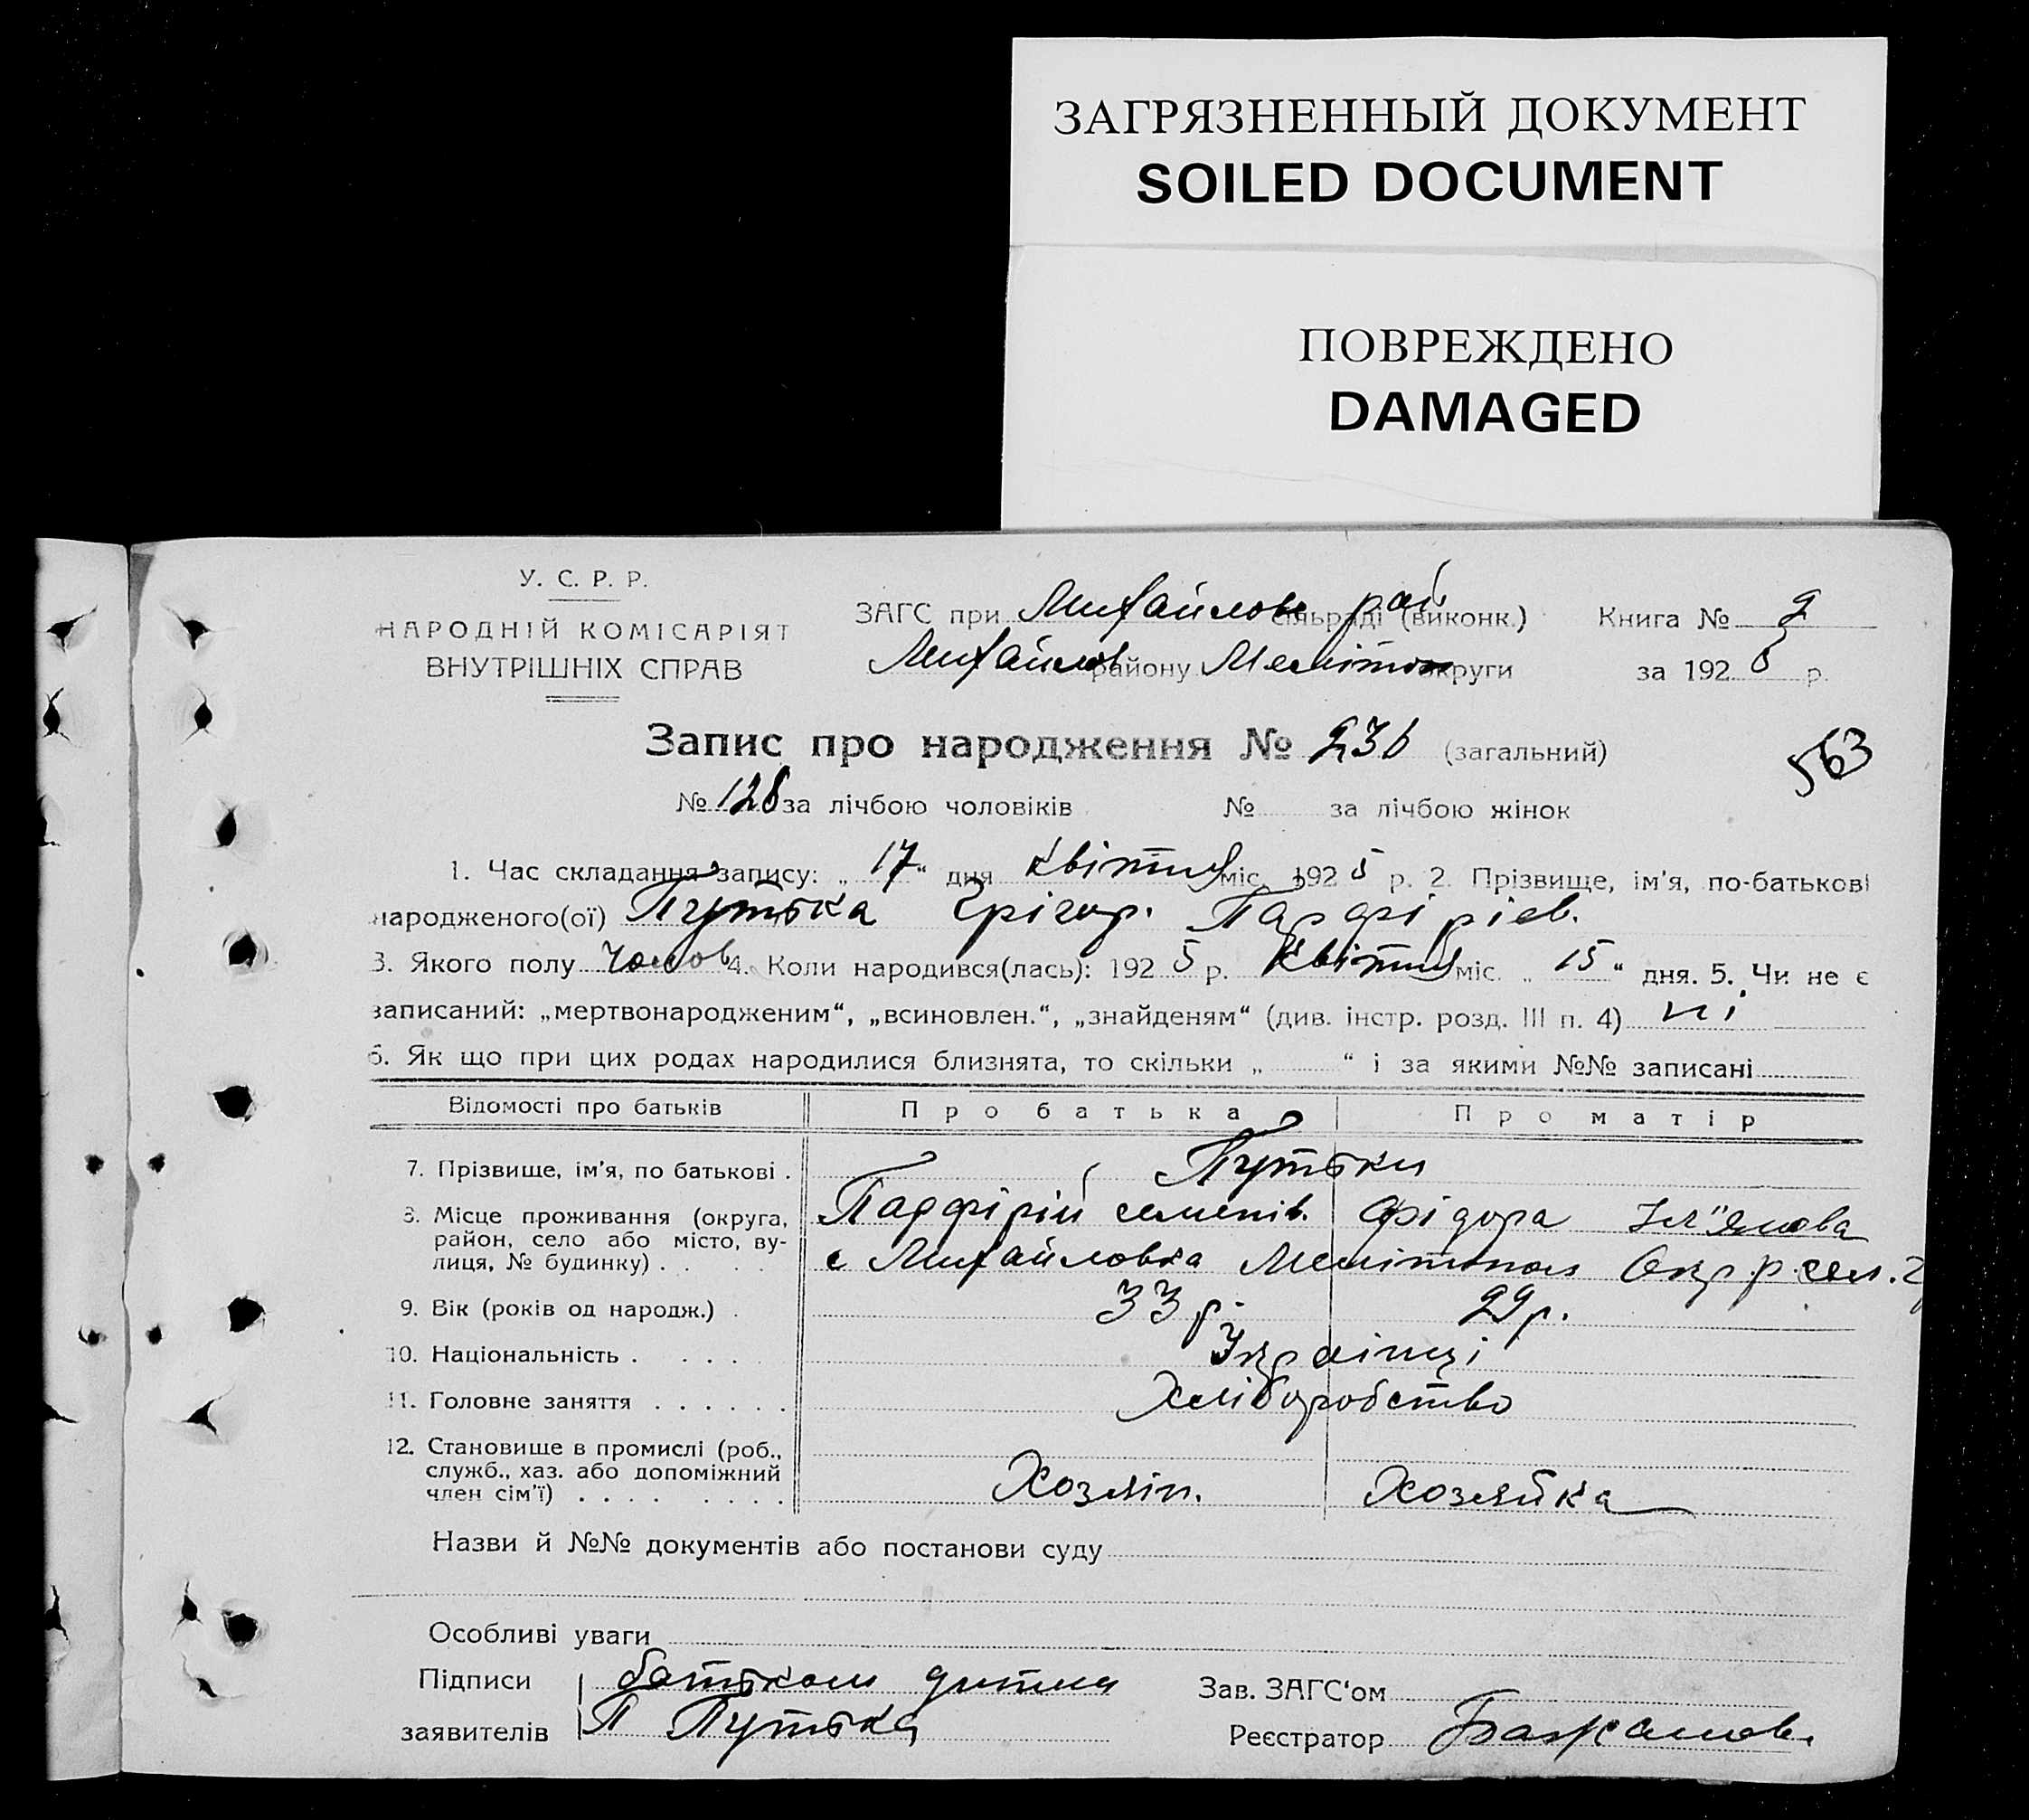 ЗАГРЯЗНЕННЫЙ ДОКУМЕНТ
SOILED DOCUMENT
ПОВРЕЖДЕНО
DAMAGED
У. С. Р. Р.
НАРОДНІЙ КОМІСАРІЯТ
ВНУТРІШНІХ СПРАВ
ЗАГС при Михайлов рай сільраді (виконк.)
Михайлов району Мелітоп округи
Книга № 2
за 1925 р.
Запис про народження № 236 (загальний)
563
№ 128 за лічбою чоловіків № за лічбою жінок
1. Час складання запису: „ 17 “ дня Квітня міс. 1925 р. 2. Прізвище, ім'я, по-батькові
народженого(ої) Путька Грігор. Парфіріев.
3. Якого полу Чолов 4. Коли народився(лась): 1925 р. Квітня міс. „ 15 “ дня. 5. Чи не є
записаний: „мертвонародженим“, „всиновлен.“, „знайденям“ (див. інстр. розд. III п. 4) ні
6. Як що при цих родах народилися близнята, то скільки „ “ і за якими №№ записані
Відомості про батьків Про батька Про матір
7. Прізвище, ім'я, по батькові . Путьки
Парфірій семенів. Фідора
8. Місце проживання (округа,
район, село або місто, ву-
лиця, № будинку) . . . . с Михайловка Мелітопол Окр
9. Вік (років од народж.) . 33 р. 29 р.
10. Національність . . . . Українці
11. Головне заняття . . . . . . Хліборобство
12. Становище в промислі (роб.,
служб., хаз. або допоміжний
член сім'ї) . . . . . . . . Хозяін. Хозяйка
Назви й №№ документів або постанови суду
Особливі уваги
Підписи батьком дитина
заявителів П Путька
Зав. ЗАГС'ом
Реєстратор